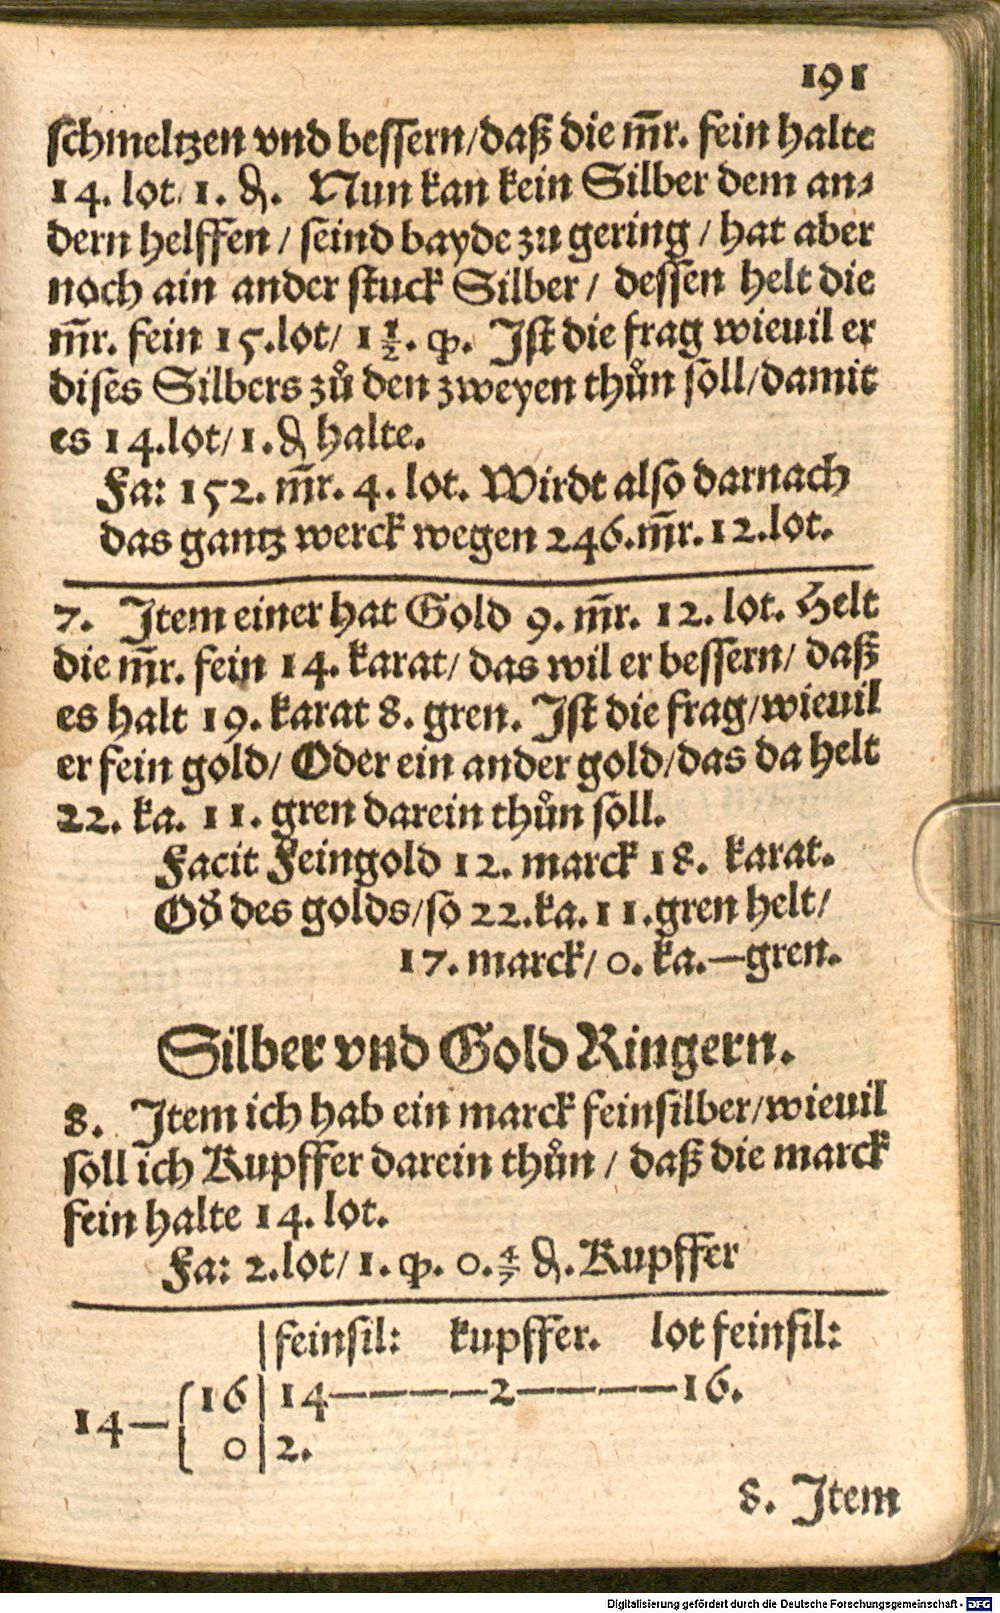 191
schmeltzen vnd bessern/daß die m̄r. fein halte
14. lot/1. ₰. Nun kan kein Silber dem an⸗
dern helffen / seind bayde zu gering / hat aber
noch ain ander stuck Silber / dessen helt die
m̄r. fein 15.lot/ 1 1/2. qͥ. Ist die frag wieuil er
dises Silbers zů den zweyen thůn soll/damit
es 14.lot/1.₰ halte.
Fa: 152. m̄r. 4. lot. Wirdt also darnach
das gantz werck wegen 246.m̄r.12.lot.
7. Item einer hat Gold 9. m̄r. 12. lot. Helt
die m̄r. fein 14. karat/ das wil er bessern/ daß
es halt 19. karat 8. gren. Ist die frag/wieuil
er fein gold/ Oder ein ander gold/das da helt
22. ka. 11. gren darein thůn soll.
Facit Feingold 12. marck 18. karat.
Od̕ des golds/so 22.ka.11.gren helt/
17. marck/ 0. ka.—gren.
Silber vnd Gold Ringern.
8. Item ich hab ein marck feinsilber/wieuil
soll ich Kupffer darein thůn / daß die marck
fein halte 14. lot.
Fa: 2.lot/ 1. qͥ. 0.4/7 ₰. Kupffer
feinsil: kupffer. lot feinsil:
14— 16 | 14————2————16.
0 | 2.
8. Item
Digitalisierung gefördert durch die Deutsche Forschungsgemeinschaft - DFG